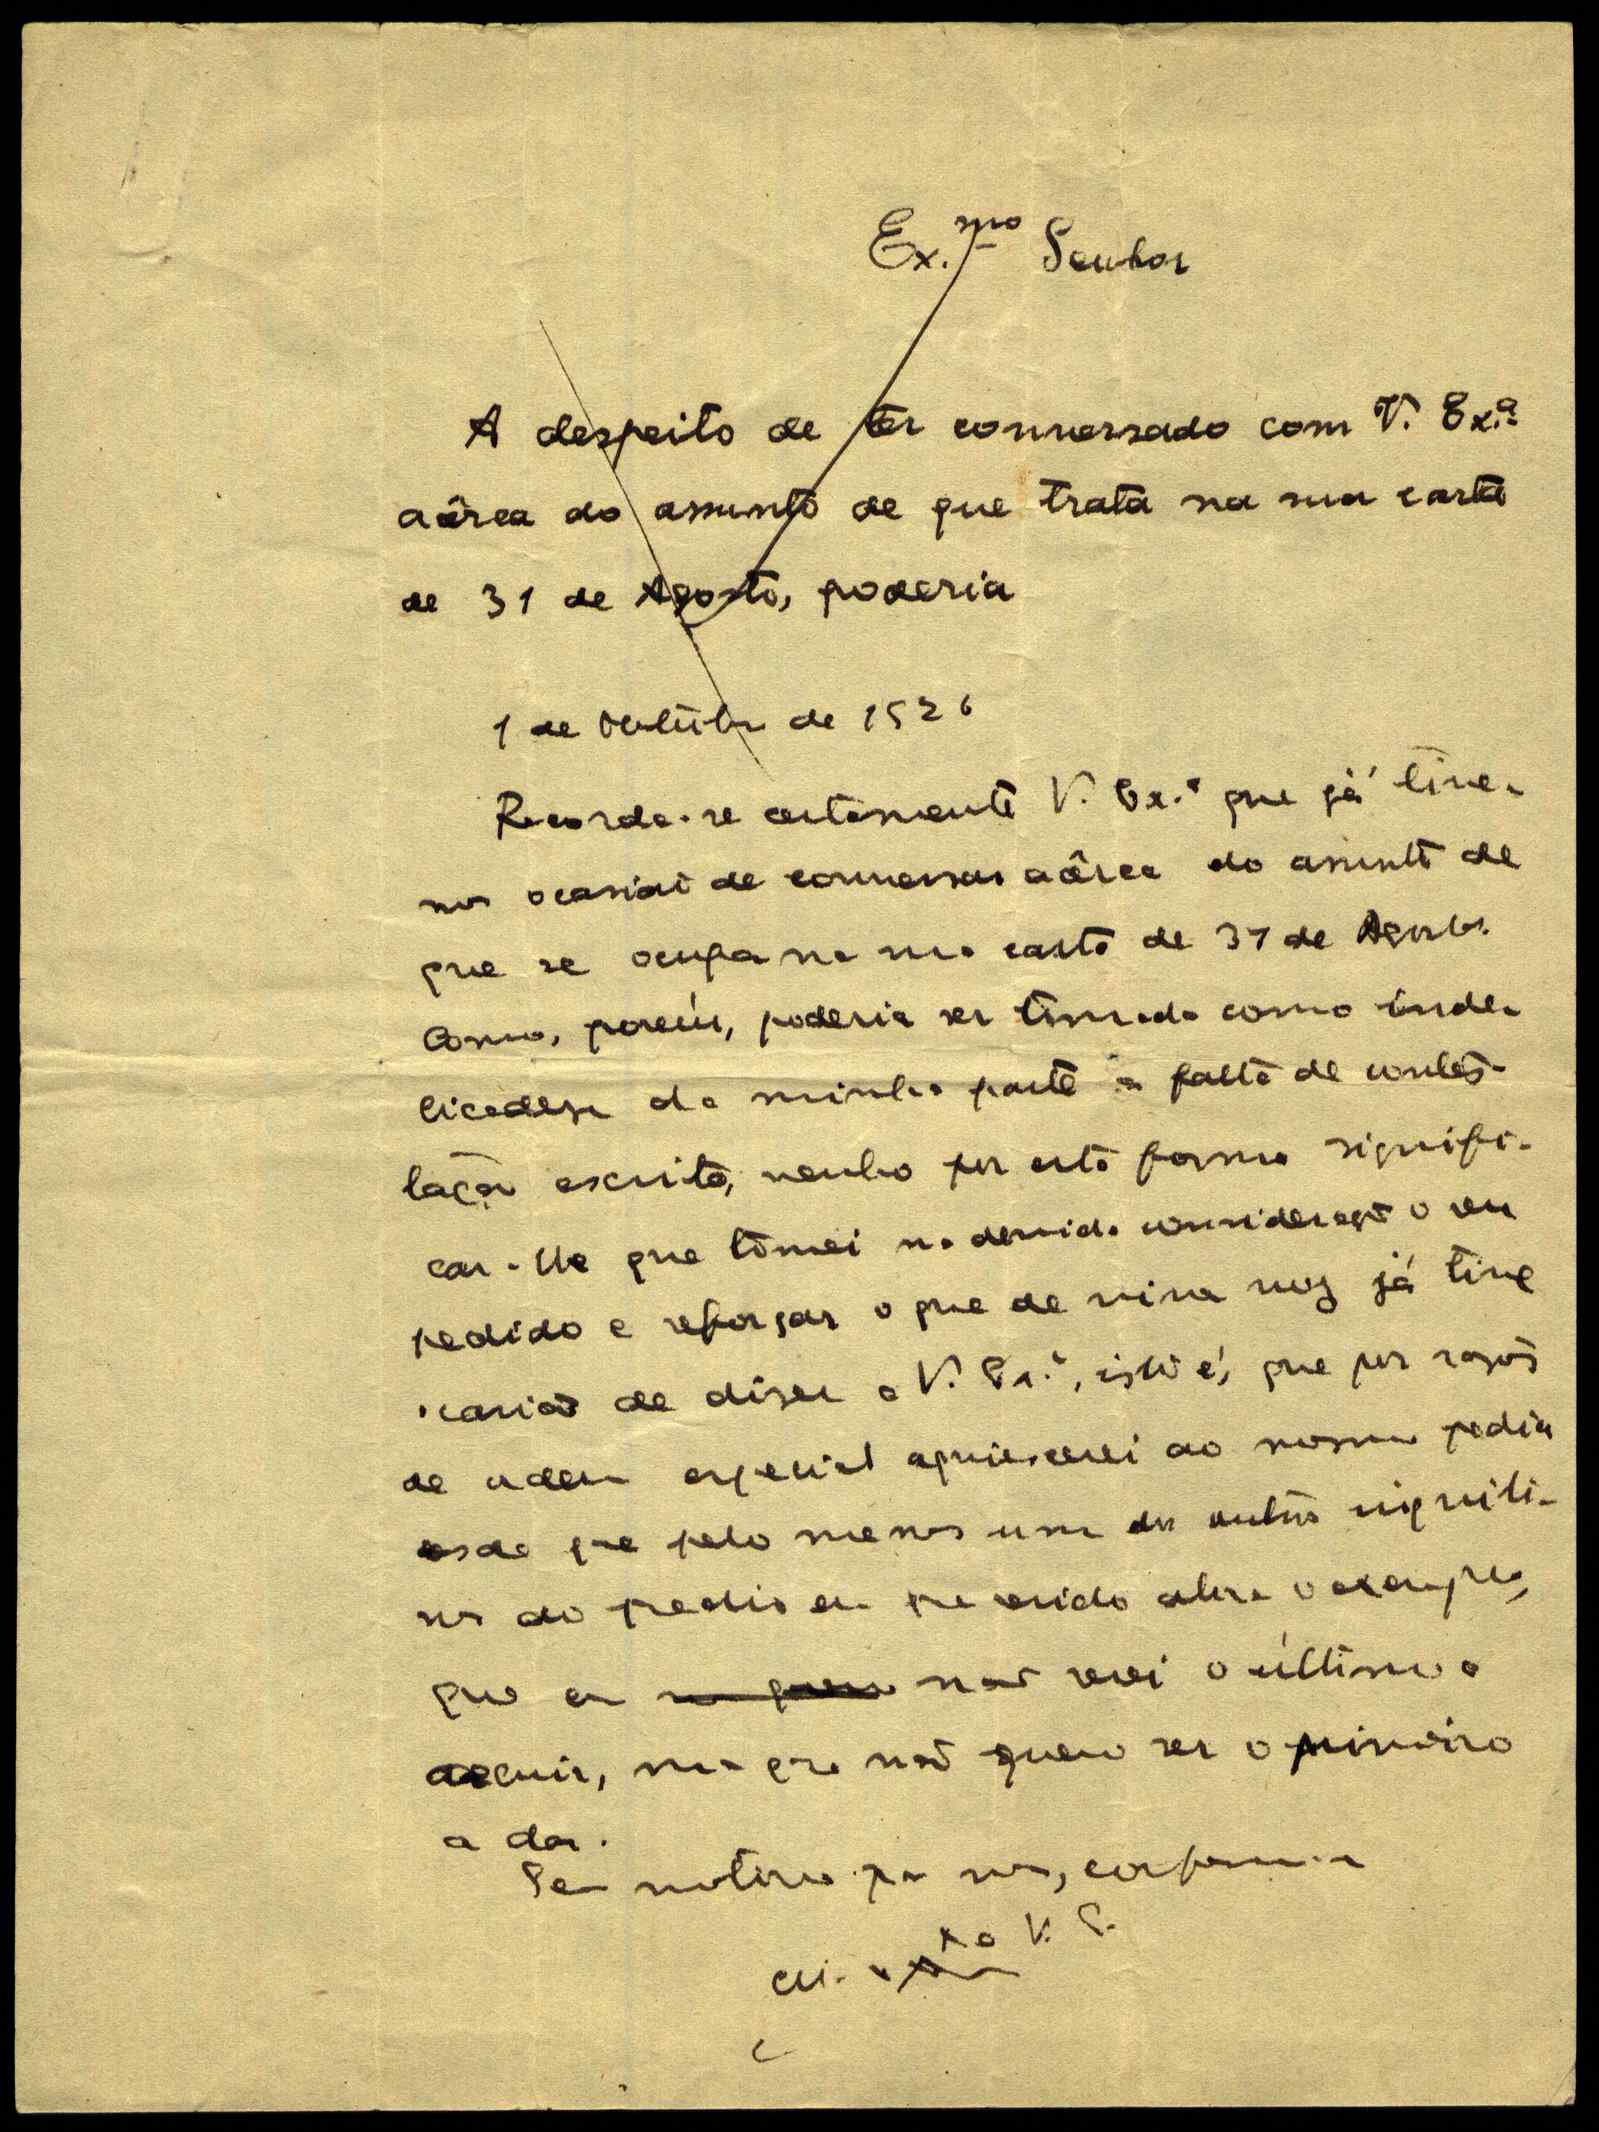 Ex.mo Senhor
A despeito de ter conversado com V. Ex.a
acêrca do assunto de que trata na sua carta
de 31 de Agosto, poderia
1 de Outubro de 1926
Recorda-se certamente V. Ex.a que já tive-
mos ocasião de conversar acêrca do assunto de
que se ocupa na sua carta de 31 de Agosto.
Como, porém, poderia ser tomada como inde-
licadesa da minha parte a falta de contes-
tação escrita, venho por esta forma signifi-
car-lhe que tomei na devida consideração o seu
pedido e reforçar o que de viva voz já tive
ocasião de diser a V. Ex.a, isto é, que por rasões
de ordem especial aquiescerei ao mesmo pedido
desde que pelo menos um dos outros inquili-
nos do predio em que resido abra o exemplo,
que eu não serei o último a
seguir, mas que não quero ser o primeiro
a dar.
Sem motivo para mais,
de V. E.